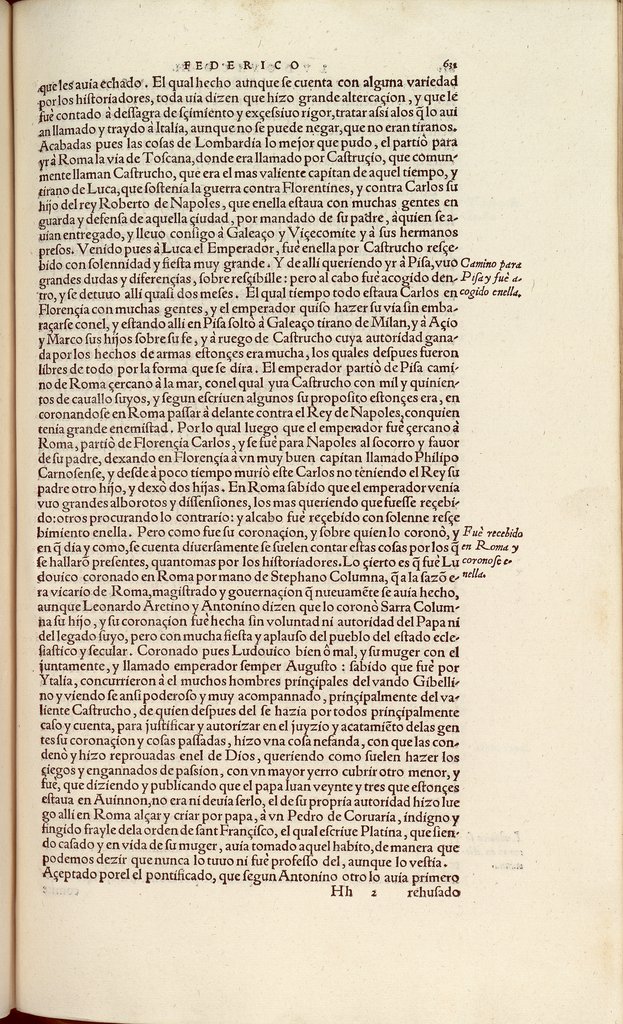 FEDERICO
que les auia echado. El qual hecho aunque se cuenta con alguna variedad
por los historiadores, toda uia dizen que hizo grande altercaçion, y que le
fuè contado à dessagradesçimiento y exçessiuo rigor, tratar assi alos q̃ lo aui
an llamado y traydo à Italia, aunque no se puede negar, que no eran tiranos.
Acabadas pues las cosas de Lombardia lo mejor que pudo, el partiò para
yr à Roma la via de Toscana, donde era llamado por Castruçio, que comun-
mente llaman Castrucho, que era el mas valiente capitan de aquel tiempo, y
tirano de Luca, que sostenia la guerra contra Florentines, y contra Carlos su
hijo del rey Roberto de Napoles, que enella estaua con muchas gentes en
guarda y defensa de aquella çiudad, por mandado de su padre, à quien se a-
uian entregado, y lleuo consigo à Galeaço y Viçecomite y à sus hermanos
presos. Venido pues à Luca el Emperador, fuè enella por Castrucho resçe-
bido con solennidad y fiesta muy grande. Y de alli queriendo yr à Pisa, vuo
grandes dudas y diferençias, sobre resçibille: pero al cabo fuè acogido den-
tro, y se detuuo alli quasi dos meses. El qual tiempo todo estaua Carlos en
Camino para
Pisa y fuè a-
cogido enella.
Florençia con muchas gentes, y el emperador quiso hazer su via sin emba-
raçarse conel, y estando alli en Pisa soltò à Galeaço tirano de Milan, y à Açio
y Marco sus hijos sobre su fe, y à ruego de Castrucho cuya autoridad gana-
da por los hechos de armas estonçes era mucha, los quales despues fueron
libres de todo por la forma que se dira. El emperador partiò de Pisa cami-
no de Roma çercano à la mar, conel qual yua Castrucho con mil y quinien-
tos de cauallo suyos, y segun escriuen algunos su proposito estonçes era, en
coronandose en Roma passar à delante contra el Rey de Napoles, con quien
tenia grande enemistad. Por lo qual luego que el emperador fuè çercano à
Roma, partiò de Florençia Carlos, y se fuè para Napoles al socorro y fauor
de su padre, dexando en Florençia à vn muy buen capitan llamado Philipo
Carnosense, y desde à poco tiempo muriò este Carlos no teniendo el Rey su
padre otro hijo, y dexò dos hijas. En Roma sabido que el emperador venia
vuo grandes alborotos y dissensiones, los mas queriendo que fuesse reçebi-
do: otros procurando lo contrario: y alcabo fuè reçebido con solenne resçe
bimiento enella. Pero como fue su coronaçion, y sobre quien lo coronò, y
en q̃ dia y como, se cuenta diuersamente se suelen contar estas cosas por los q̃
se hallarõ presentes, quantomas por los historiadores. Lo çierto es q̃ fuè Lu
douico coronado en Roma por mano de Stephano Columna, q̃ a la sazõ e-
Fuè recebido
en Roma y
coronose e-
nella.
ra vicario de Roma, magistrado y gouernaçion q̃ nueuamẽte se auia hecho,
aunque Leonardo Aretino y Antonino dizen que lo coronò Sarra Colum-
na su hijo, y su coronaçion fuè hecha sin voluntad ni autoridad del Papa ni
del legado suyo, pero con mucha fiesta y aplauso del pueblo del estado ecle-
siastico y secular. Coronado pues Ludouico bien ò mal, y su muger con el
juntamente, y llamado emperador semper Augusto: sabido que fuè por
Ytalia, concurrieron à el muchos hombres prinçipales del vando Gibelli-
no y viendo se ansi poderoso y muy acompannado, prinçipalmente del va-
liente Castrucho, de quien despues del se hazia por todos prinçipalmente
caso y cuenta, para justificar y autorizar en el juyzio y acatamiẽto delas gen
tes su coronaçion y cosas passadas, hizo vna cosa nefanda, con que las con-
denò y hizo reprouadas enel de Dios, queriendo como suelen hazer los
çiegos y engannados de passion, con vn mayor yerro cubrir otro menor, y
fuè, que diziendo y publicando que el papa Iuan veynte y tres que estonçes
estaua en Auinnon, no era ni deuia serlo, el de su propria autoridad hizo lue
go alli en Roma alçar y criar por papa, à vn Pedro de Coruaria, indigno y
fingido frayle dela orden de sant Françisco, el qual escriue Platina, que sien-
do casado y en vida de su muger, auia tomado aquel habito, de manera que
podemos dezir que nunca lo tuuo ni fuè professo del, aunque lo vestia.
Açeptado porel el pontificado, que segun Antonino otro lo auia primero
Hh 2 rehusado